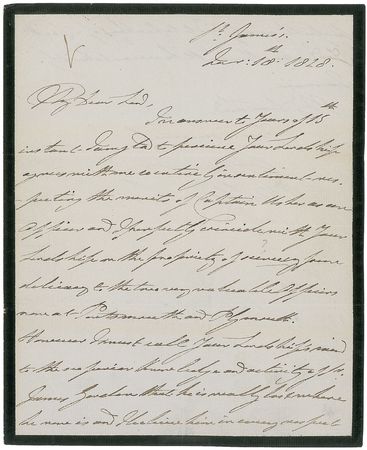 St. James's.
Decr. 18th: 1828.
My dear Lord,
In answer to Yours of 15th
instant I am glad to perceive Your Lordship
agrees with me entirely in sentiment res-
pecting the merits of Captain Usher as an
Officer and I perfectly coincide with Your
Lordship on the propriety of some
delicacy to the two very valuable Officers
now at Portsmouth and Plymouth.
However I must call Your Lordship's mind
to the superior knowledge and activity of Sr.
James Gordon that he is really lost where
he now is and I believe him in every respect